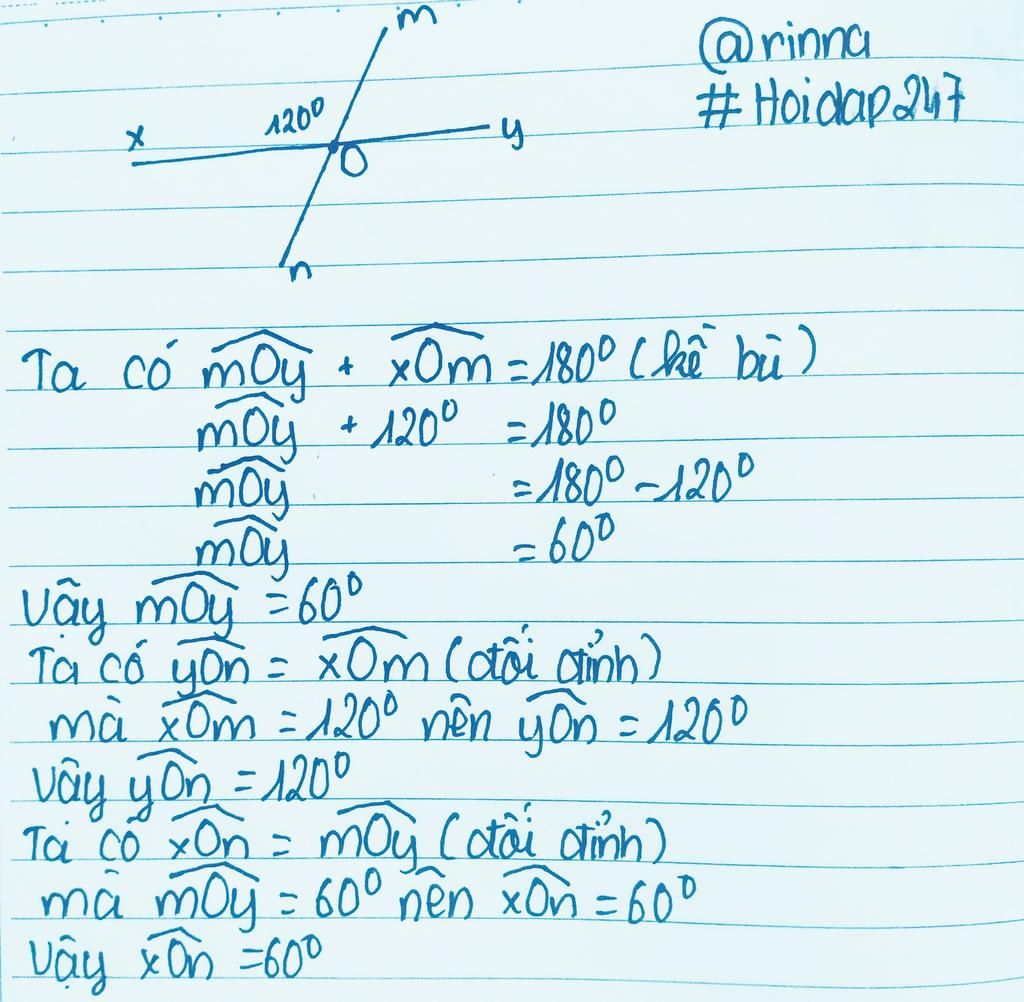 m
@rinna
#Hoidap247
120⁰
x
y
O
n
Ta có m̂Oy + x̂Om = 180⁰ (kề bù)
m̂Oy + 120⁰ = 180⁰
m̂Oy = 180⁰ - 120⁰
m̂Oy = 60⁰
Vậy m̂Oy = 60⁰
Ta có ŷOn = x̂Om (đối đỉnh)
mà x̂Om = 120⁰ nên ŷOn = 120⁰
Vậy ŷOn = 120⁰
Ta có x̂On = m̂Oy (đối đỉnh)
mà m̂Oy = 60⁰ nên x̂On = 60⁰
Vậy x̂On = 60⁰